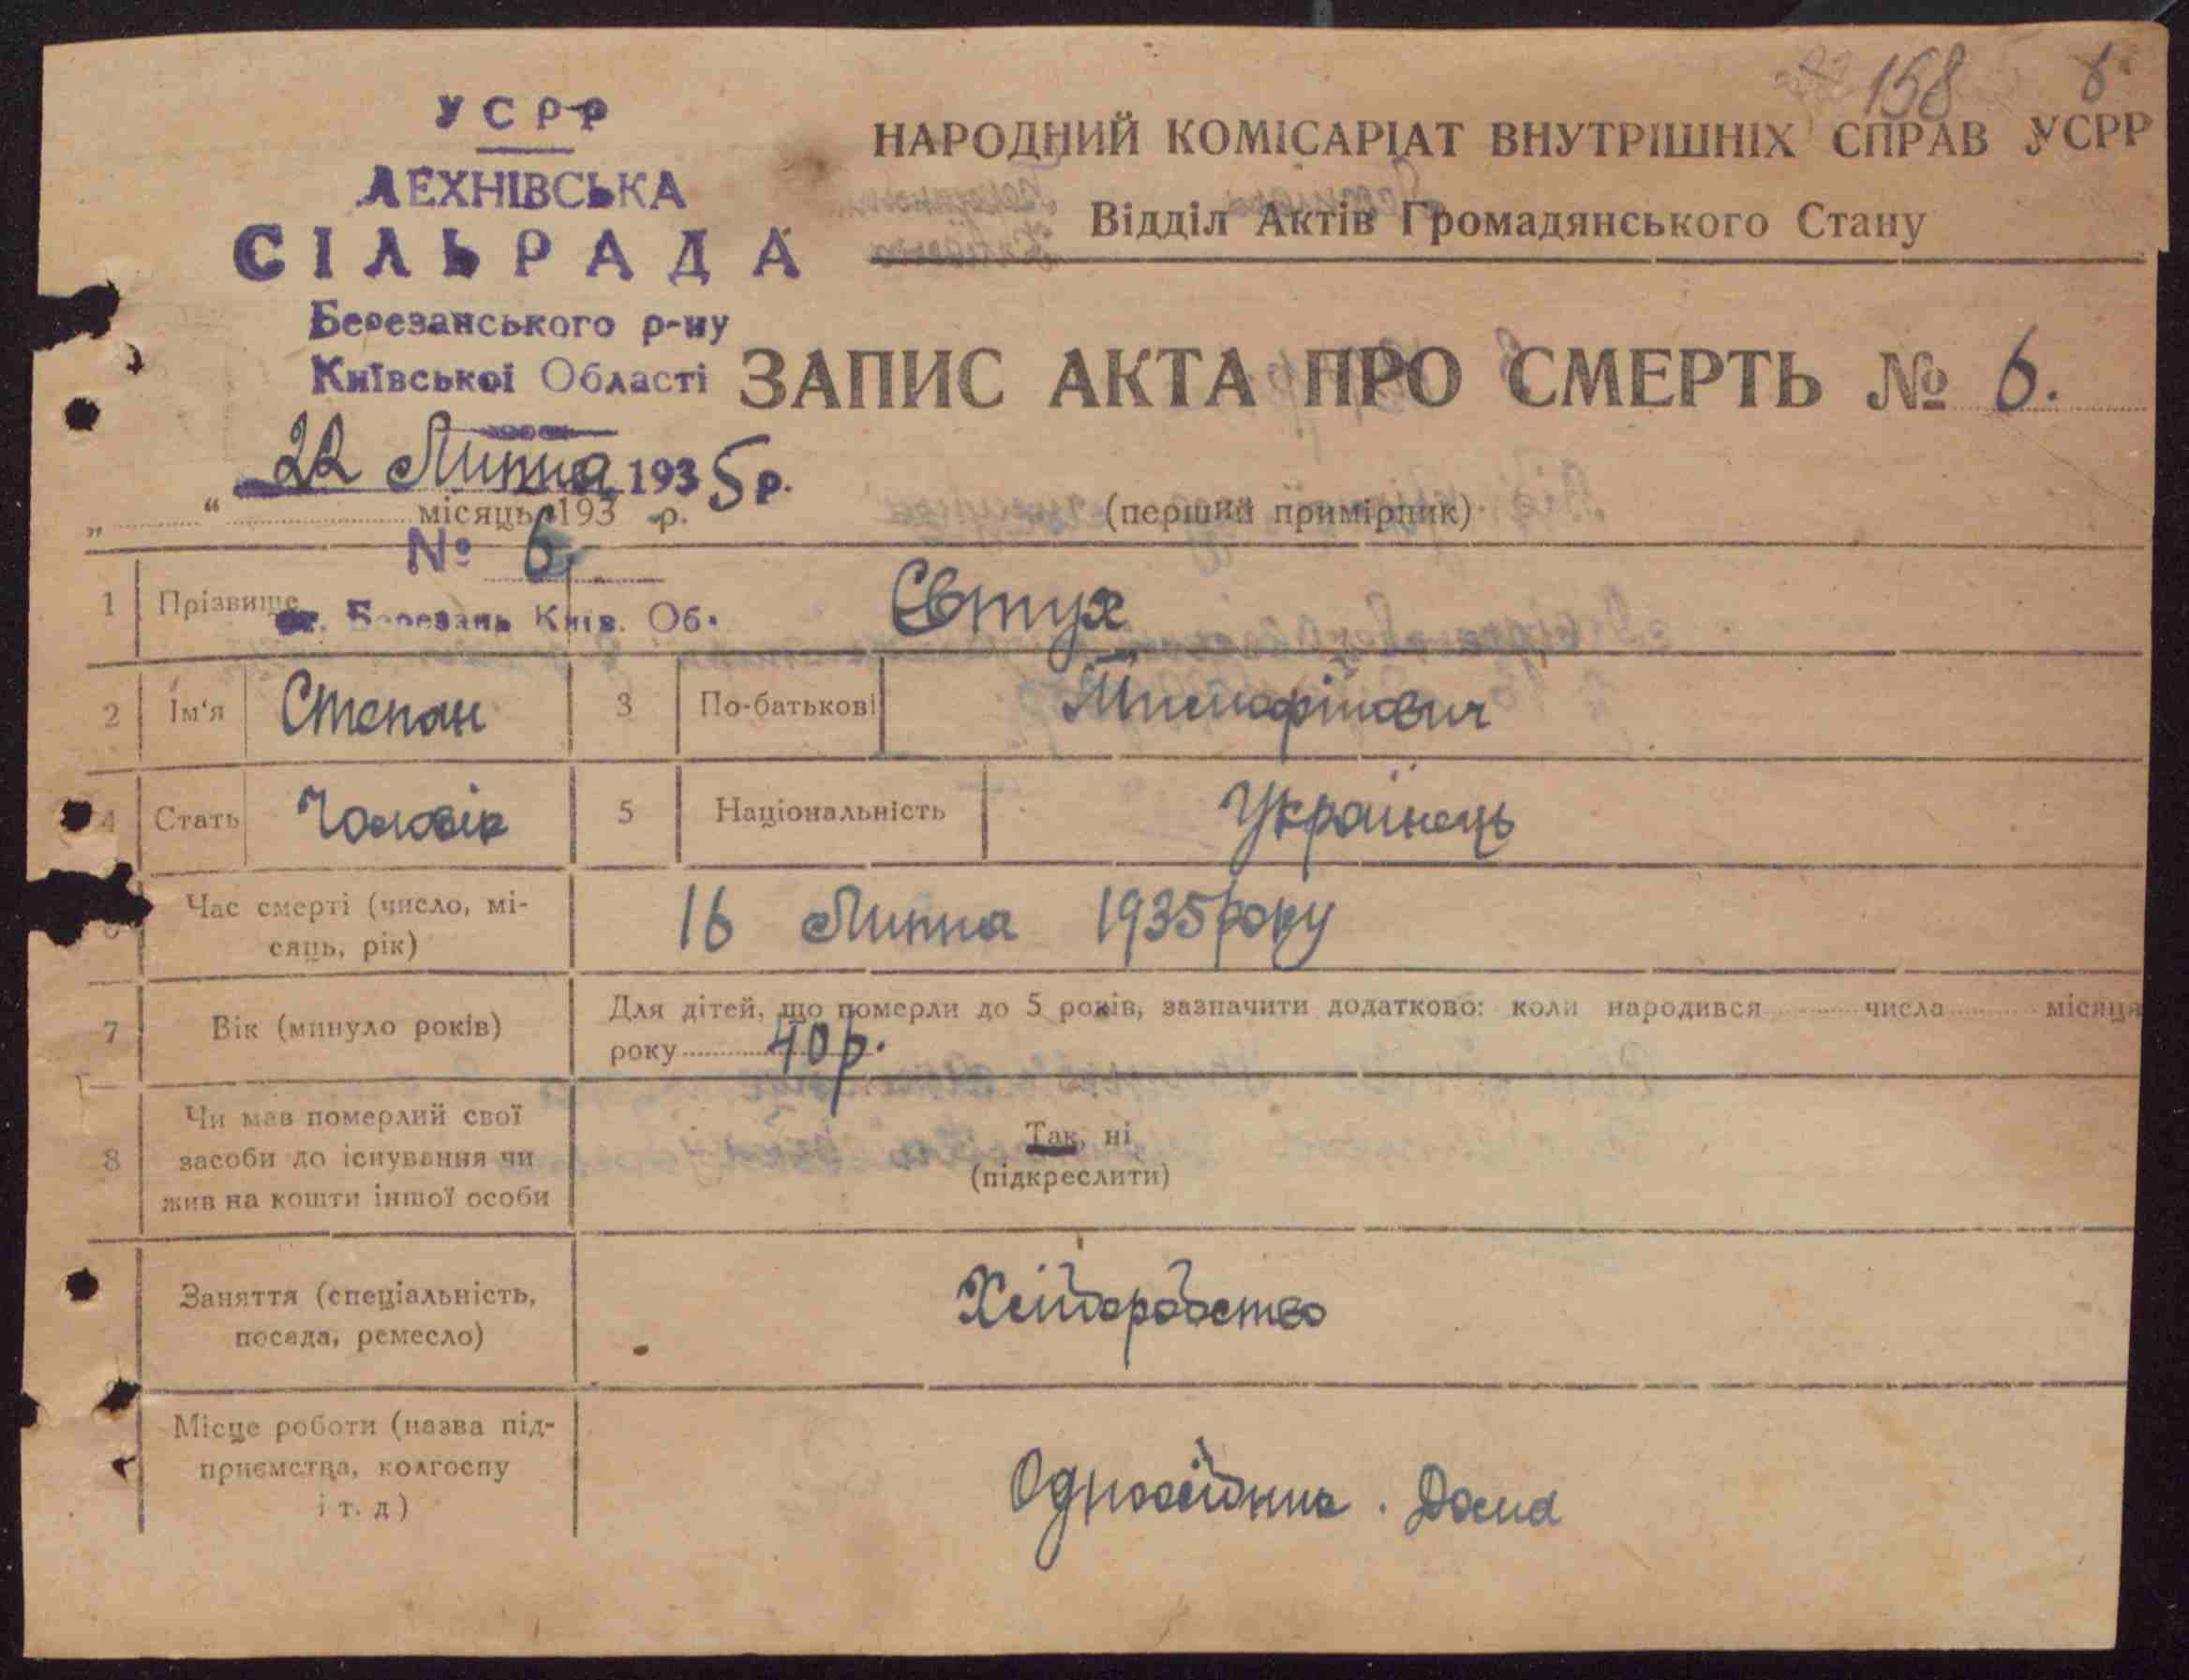 158 8
УСРР
ЛЕХНІВСЬКА
СІЛЬРАДА
Березанського р-ну
Київської Області
22 Липня 1935 р.
№ 6
ст. Березань Київ. Об.
НАРОДНИЙ КОМІСАРІАТ ВНУТРІШНІХ СПРАВ УСРР
Відділ Актів Громадянського Стану
ЗАПИС АКТА ПРО СМЕРТЬ № 6.
„ “ місяць 193 р.
(перший примірник)
1 Прізвище Євтух
2 Ім'я Степан 3 По-батькові Тимофійович
4 Стать Чоловік 5 Національність Українець
6 Час смерті (число, мі-
сяць, рік) 16 Липня 1935 року
7 Вік (минуло років) Для дітей, що померли до 5 років, зазначити додатково: коли народився числа місяця
року 40 р.
8 Чи мав померлий свої
засоби до існування чи
жив на кошти іншої особи
Так, ні
(підкреслити)
Заняття (спеціальність,
посада, ремесло) Хліборобство
Місце роботи (назва під-
приємства, колгоспу
і т. д) Одноосібник. Дома